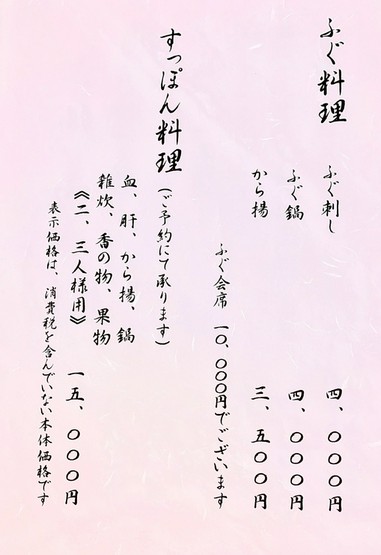 ふぐ料理
ふぐ刺し　四、〇〇〇円
ふぐ鍋　四、〇〇〇円
から揚　三、五〇〇円
ふぐ会席　一〇、〇〇〇円でございます
すっぽん料理（ご予約にて承ります）
血、肝、から揚、鍋
雑炊、香の物、果物
《二、三人様用》　一五、〇〇〇円
表示価格は、消費税を含んでいない本体価格です